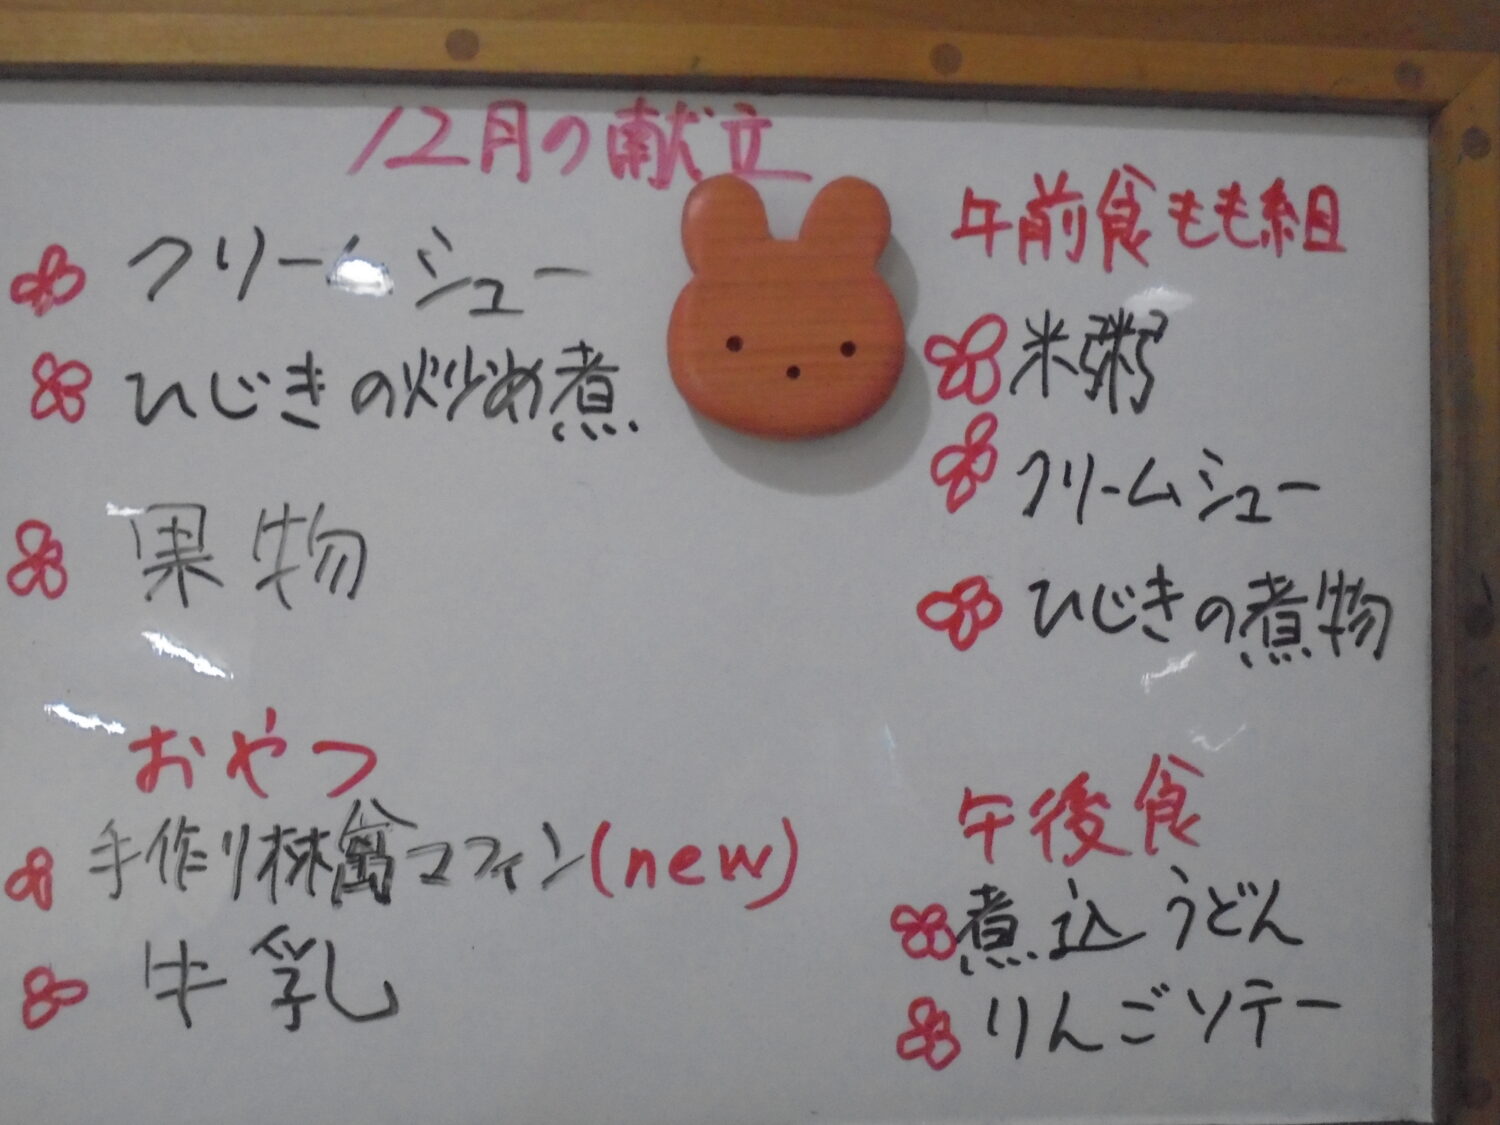 12月の献立
クリームシュー
ひじきの炒め煮
果物
おやつ
手作り林檎マフィン(new)
牛乳
午前食もも組
米粥
クリームシュー
ひじきの煮物
午後食
煮込うどん
りんごソテー